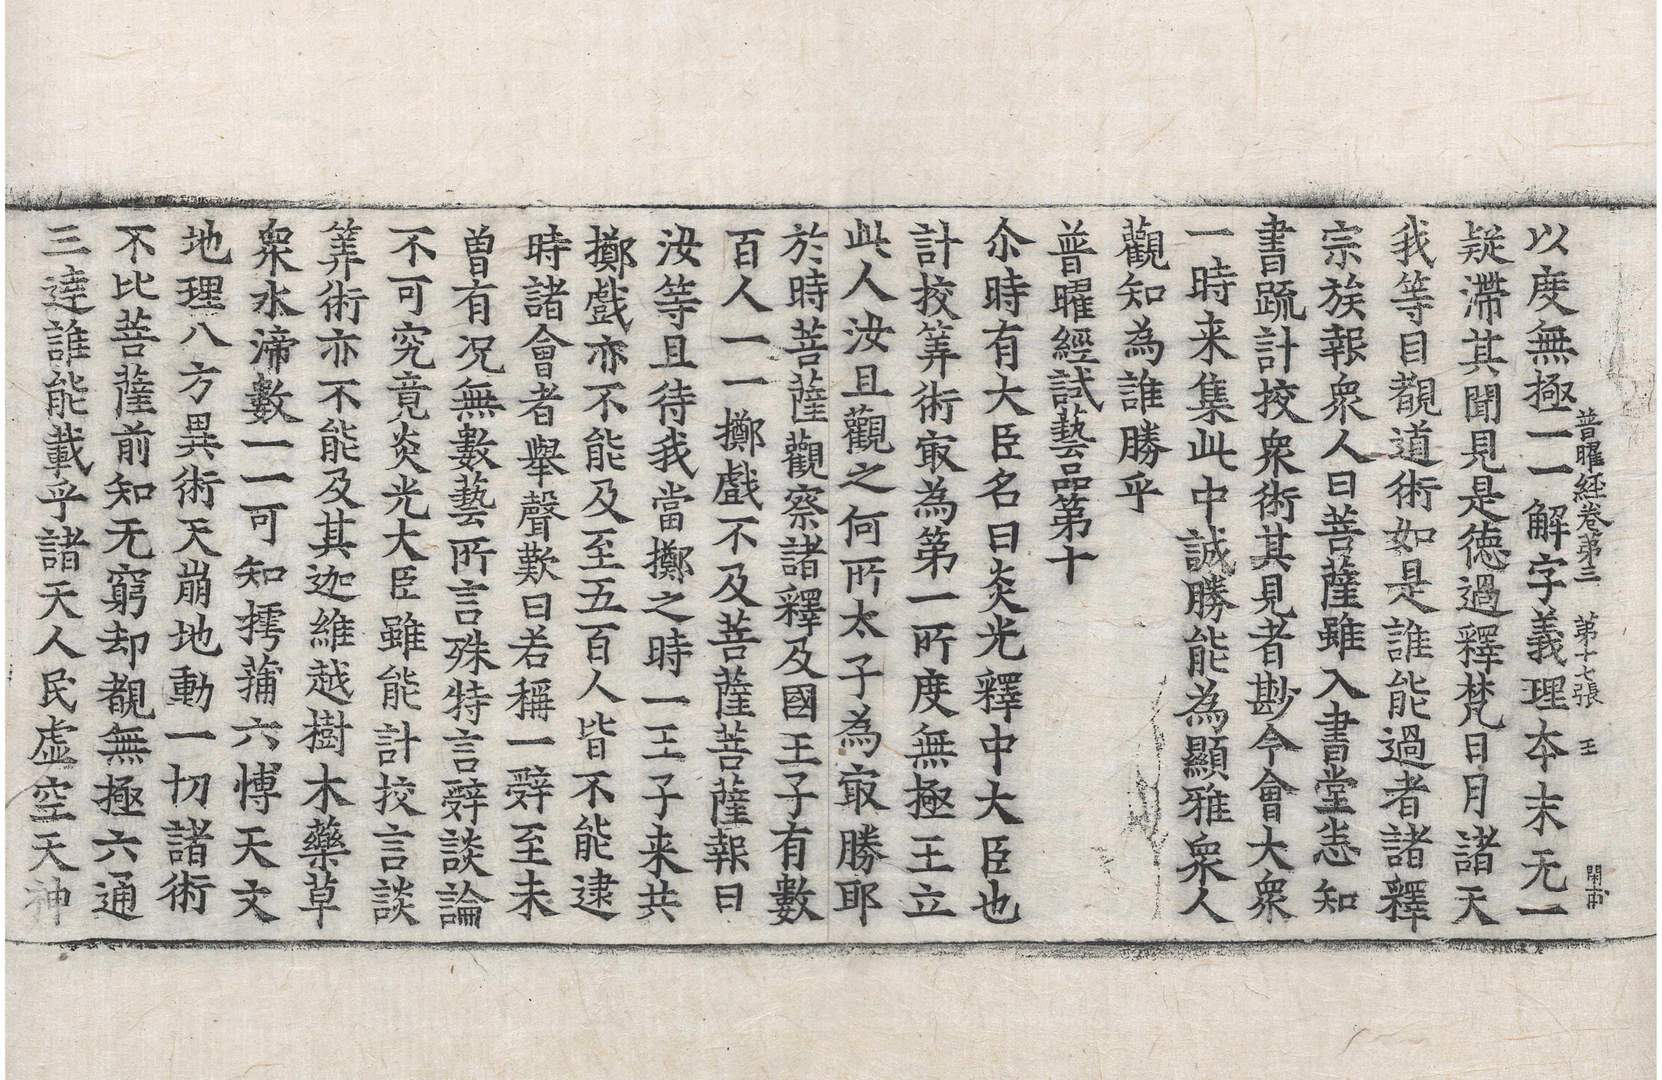 普曜経巻第三 第十七張 王
以度無極一一解字義理夲末无一
疑滯其聞見是徳過釋梵日月諸天
我等目覩道術如是誰能過者諸釋
宗族報衆人曰菩薩雖入書堂悉知
書䟽計挍衆術其見者尠今會大衆
一時来集此中誠勝能為顯雅衆人
觀知為誰勝乎
普曜經試藝品第十
尒時有大臣名曰炎光釋中大臣也
計挍筭術㝡為第一所度無極王立
此人汝且觀之何所太子為㝡勝耶
於時菩薩觀察諸釋及國王子有數
百人一一擲戲不及菩薩菩薩報曰
汝等且待我當擲之時一王子来共
擲戲亦不能及至五百人皆不能逮
時諸會者舉聲歎曰若稱一辤至未
曽有况無數藝所言殊特言辤談論
不可究竟炎光大臣雖能計挍言談
筭術亦不能及其迦維越樹木藥草
衆水渧數一一可知摴蒱六愽天文
地理八方異術天崩地動一切諸術
不比菩薩前知无窮却覩無極六通
三達誰能載乎諸天人民虛空天神